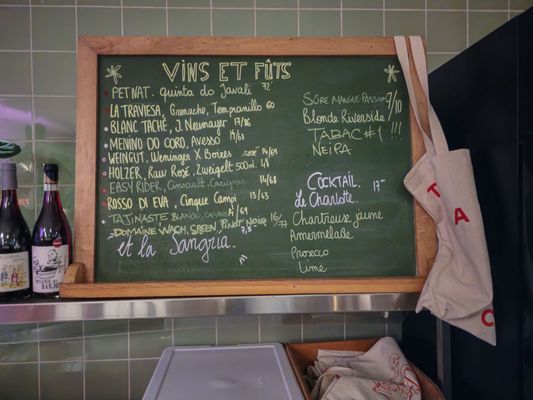 VINS ET FÛTS
PETNAT. Quinta do Javali 72
LA TRAVIESA, Grenache, Tempranillo 60
BLANC TACHÉ, J. Neumayer 17/86
MENINO DO CORO, Avesso 14/63
WEINGUT, Weninger X Boires rosé 14/69
HOLZER, Raw Rosé, Zweigelt 500ml 48
EASY RIDER, Cinsault, Carignan 14/68
ROSSO DI EVA, Cinque Campi 13/63
TAJINASTE Blanco 14/69
DOMAINE WACH, SPEEN, PINOT NOIR 16/77
et la Sangria. 7,5
SÛRE MANGUE PASSION
Blonde Riverside 7/10
TABAC #1 !!!
NEIPA
COCKTAIL 17
Le Charlotte
Chartreuse jaune
Amermelade
Prosecco
Lime
T
A
C